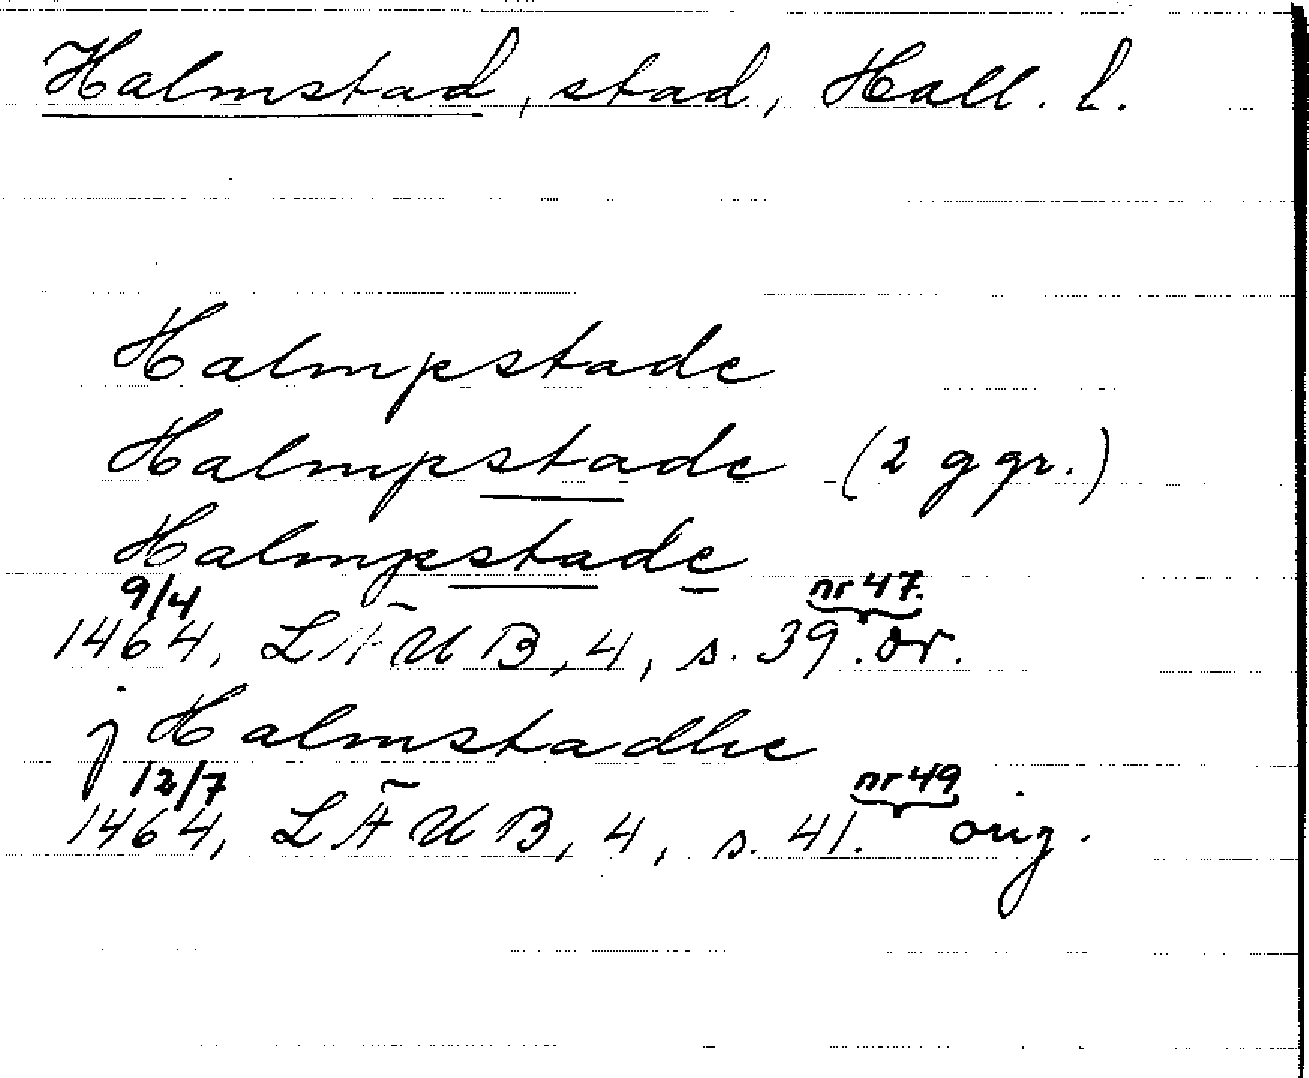 Halmstad, stad, Hall. l.
Halmpstade
Halmpstade (2 ggr.)
Halmpstade
9/4 nr 47.
1464, LÄUB, 4, s. 39. or.
j Halmstadhe
12/7 nr 49
1464, LÄUB, 4, s. 41. orig.